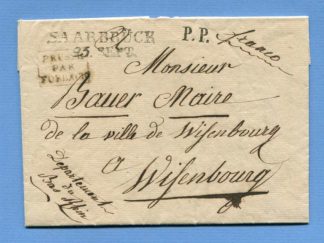 SAARBRÜCK
25. SEPT.
P.P.
franco
PRUSSE
PAR
FORBACH
Monsieur
Bauer Maire
de la ville de Wisenbourg
a
Wisenbourg
Departement
du
Bas Rhin